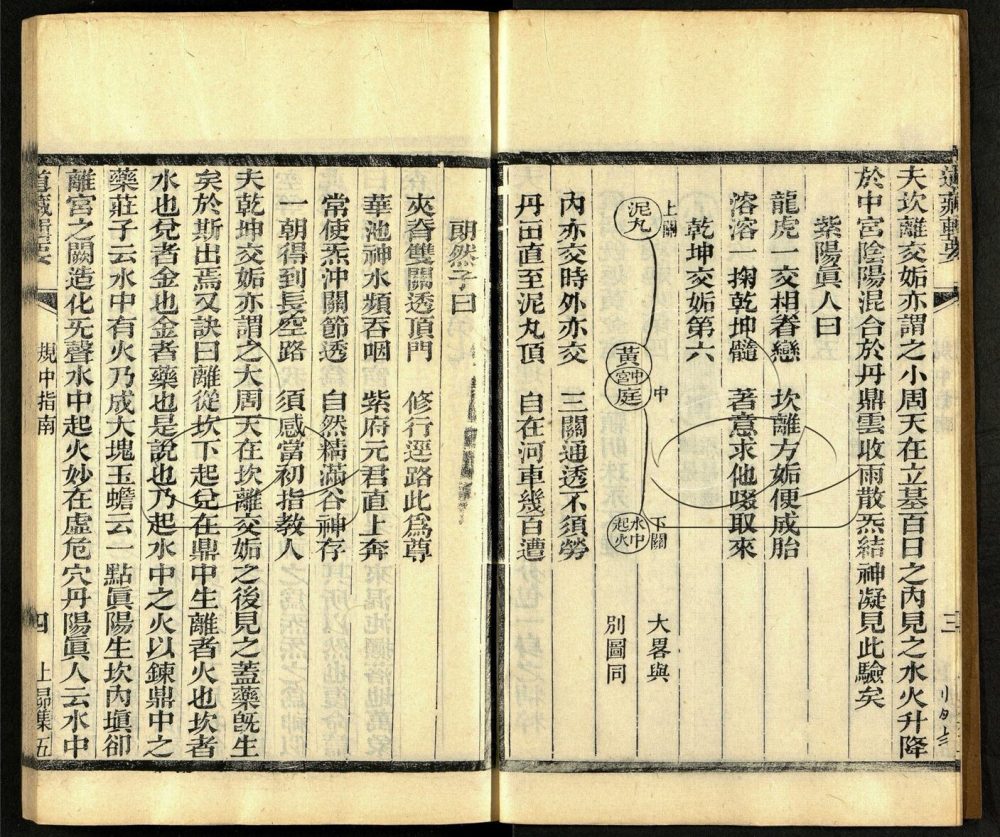 道藏輯要
三
夫坎離交姤亦謂之小周天在立基百日之內見之水火升降
於中宮陰陽混合於丹鼎雲收雨散炁結神凝見此驗矣
紫陽眞人曰
龍虎一交相眷戀　坎離方姤便成胎
溶溶一掬乾坤髓　著意求他啜取來
乾坤交姤第六
上關　中　下關
泥丸　黃庭　中宮　水中起火
大畧與
別圖同
內亦交時外亦交　三關通透不須勞
丹田直至泥丸頂　自在河車幾百遭
朗然子曰
夾脊雙關透頂門　修行逕路此爲尊
華池神水頻吞咽　紫府元君直上奔
常使炁沖關節透　自然精滿谷神存
一朝得到長空路　須感當初指教人
夫乾坤交姤亦謂之大周天在坎離交姤之後見之蓋藥旣生
矣於斯出焉又訣曰離從坎下起兌在鼎中生離者火也坎者
水也兌者金也金者藥也是說也乃起水中之火以鍊鼎中之
藥莊子云水中有火乃成大塊玉蟾云一點眞陽生坎內塡卻
離宮之闕造化无聲水中起火妙在虛危穴丹陽眞人云水中
道藏輯要
規中指南
四
上昴集五